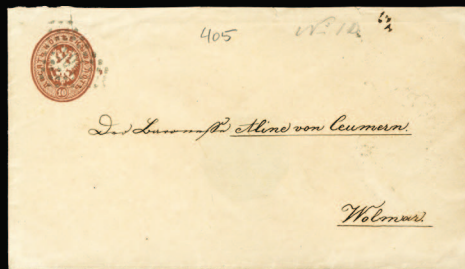 405 No 14
10
Der Baronesse Aline von Ceumern.
Wolmar.